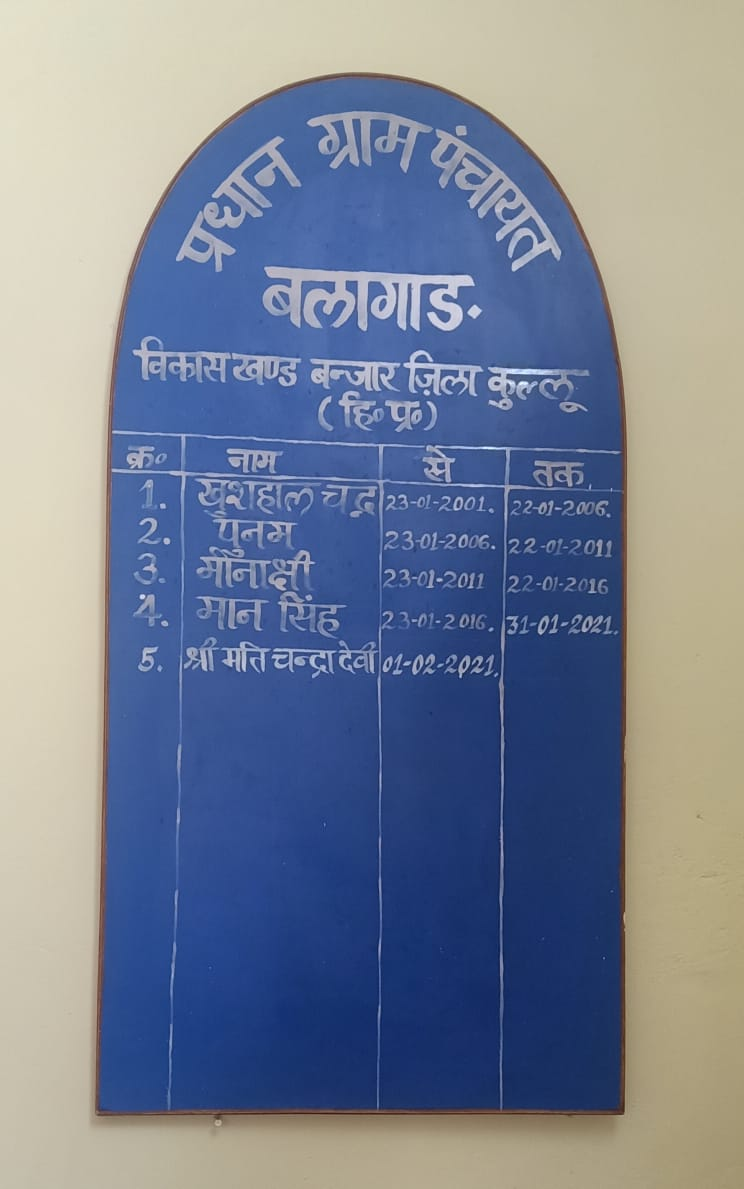 प्रधान ग्राम पंचायत
बलागाड.
विकास खण्ड बन्जार ज़िला कुल्लू
(हि० प्र०)
क्र० नाम से तक
1. खुशहाल चन्द्र 23-01-2001. 22-01-2006.
2. पुनम 23-01-2006. 22-01-2011
3. मीनाक्षी 23-01-2011 22-01-2016
4. मान सिंह 23-01-2016. 31-01-2021.
5. श्री मति चन्द्रा देवी 01-02-2021.